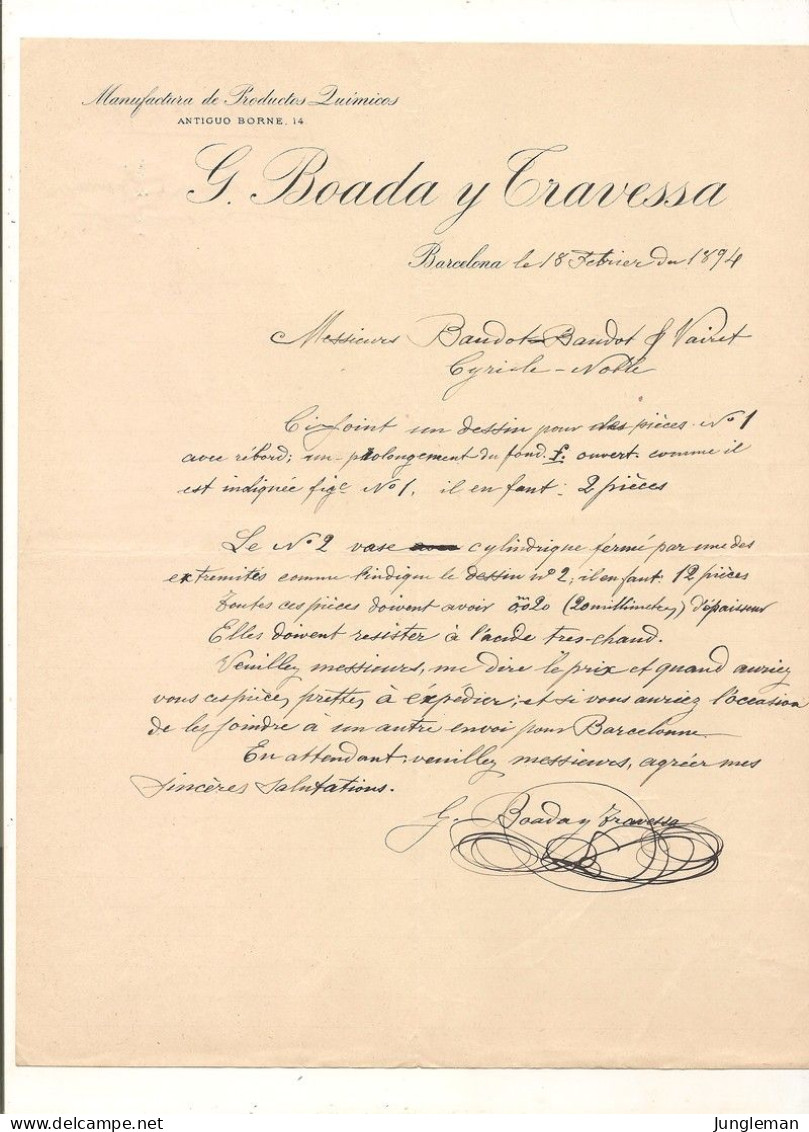 Manufactura de Productos Quimicos
ANTIGUO BORNE, 14
G. Boada y Travessa
Barcelona le 18 Febrier du 1894
Messieurs Baudot-Baudot & Vairet
Cyricle-Noble
Ci-Joint un dessin pour des pièces Nº 1
avec rébord; un prolongement du fond f. ouvert comme il
est indiquée fige Nº 1. il en faut: 2 pièces
Le Nº 2 vase cylindrique fermé par une des
extremités comme l'indique le dessin nº 2; il en faut: 12 pièces
Toutes ces pièces doivent avoir 0m020 (20 millimetres) d'épaisseur
Elles doivent resister à l'acide tres-chaud.
Veuillez messieurs, me dire le prix et quand auriez
vous ces pièces prettes à éxpédier; et si vous auriez l'occasion
de les joindre à un autre envoi pour Barcelonne
En attendant veuillez messieurs, agréer mes
sincères salutations.
G. Boada y Travessa
Jungleman